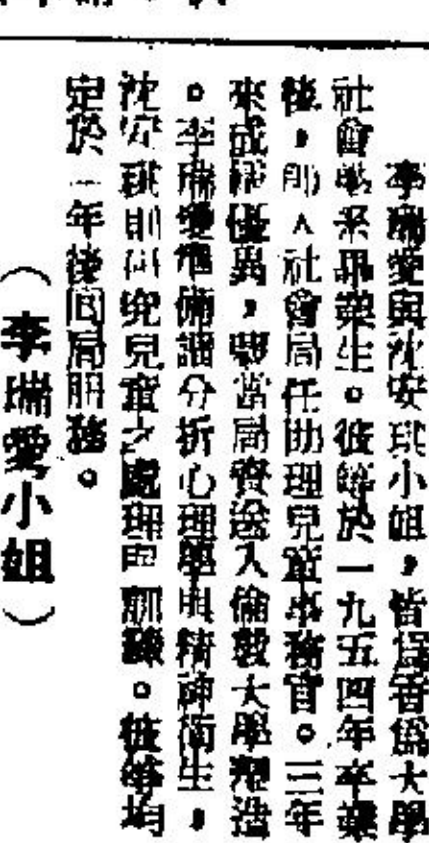 李瑞愛與沈安琪小姐，皆爲香港大學
社會學系畢業生。彼等於一九五四年卒業
後，即入社會局任助理兒童事務官。三年
來成績優異，獲當局資送入倫敦大學深造
。李瑞愛準備讀分析心理學與精神衞生，
沈安琪則研究兒童之處理與訓練。彼等均
定於一年後囘局服務。
（李瑞愛小姐）